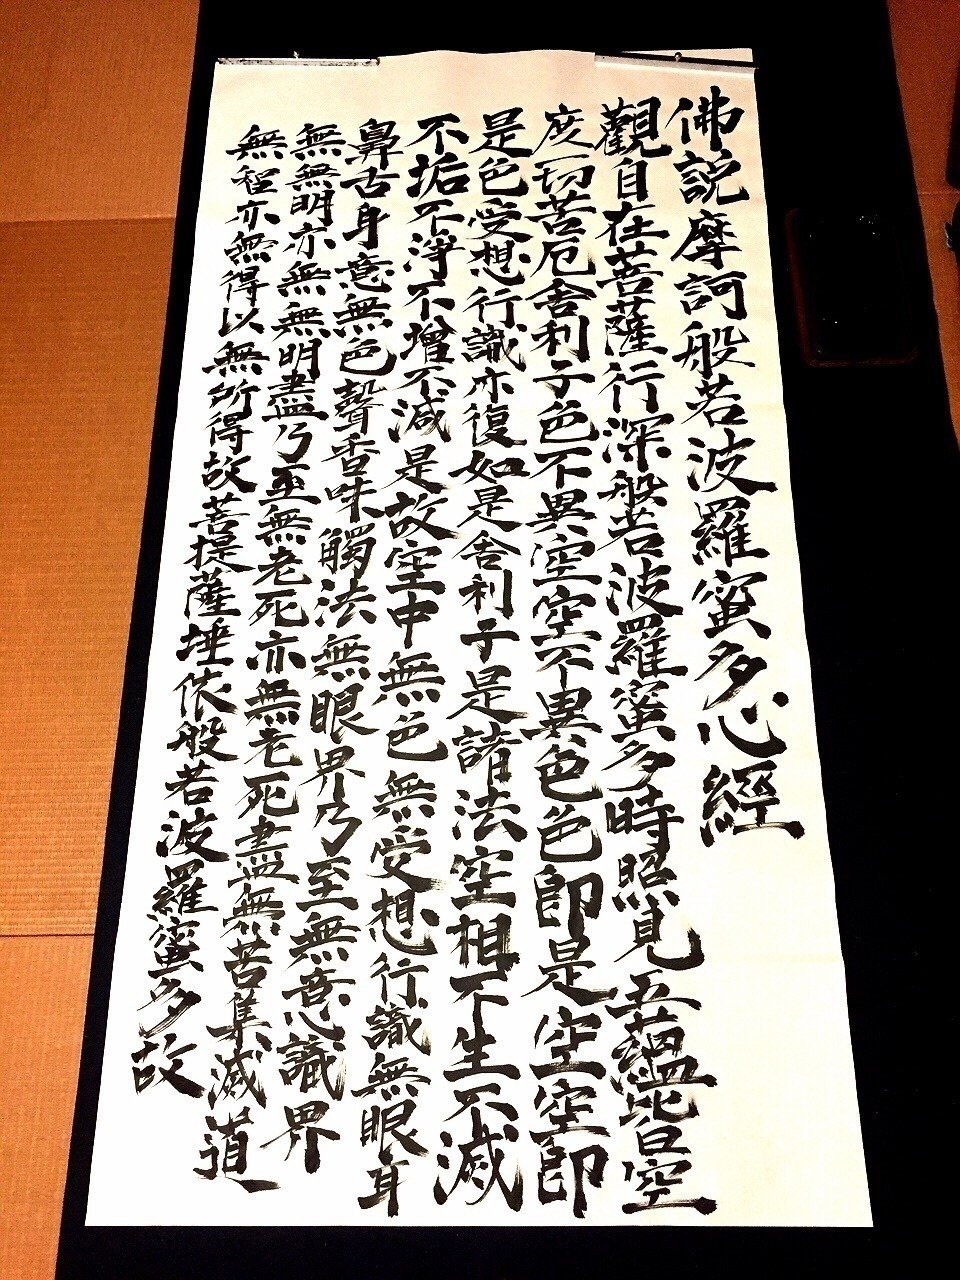 佛説摩訶般若波羅蜜多心經
觀自在菩薩行深般若波羅蜜多時照見五蘊皆空
度一切苦厄舍利子色不異空空不異色色即是空空即
是色受想行識亦復如是舍利子是諸法空相不生不滅
不垢不淨不增不減是故空中無色無受想行識無眼耳
鼻舌身意無色聲香味觸法無眼界乃至無意識界
無無明亦無無明盡乃至無老死亦無老死盡無苦集滅道
無智亦無得以無所得故菩提薩埵依般若波羅蜜多故